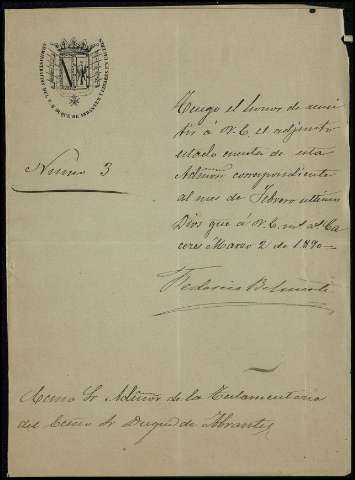 ADMINISTRACION DEL E. S. DUQUE DE ABRANTES Y LINARES EN CACERES
Numero 3
Tengo el honor de remi
tir á V.E. el adjunto
estado cuenta de esta
Admon correspondiente
al mes de Febrero ultimo
Dios gue á V.E. ms. as. Ca
ceres Marzo 2 de 1890
Federico Belmonte
Excmo Sr Admor de la Testamentaria
del Excmo Sr Duque de Abrantes